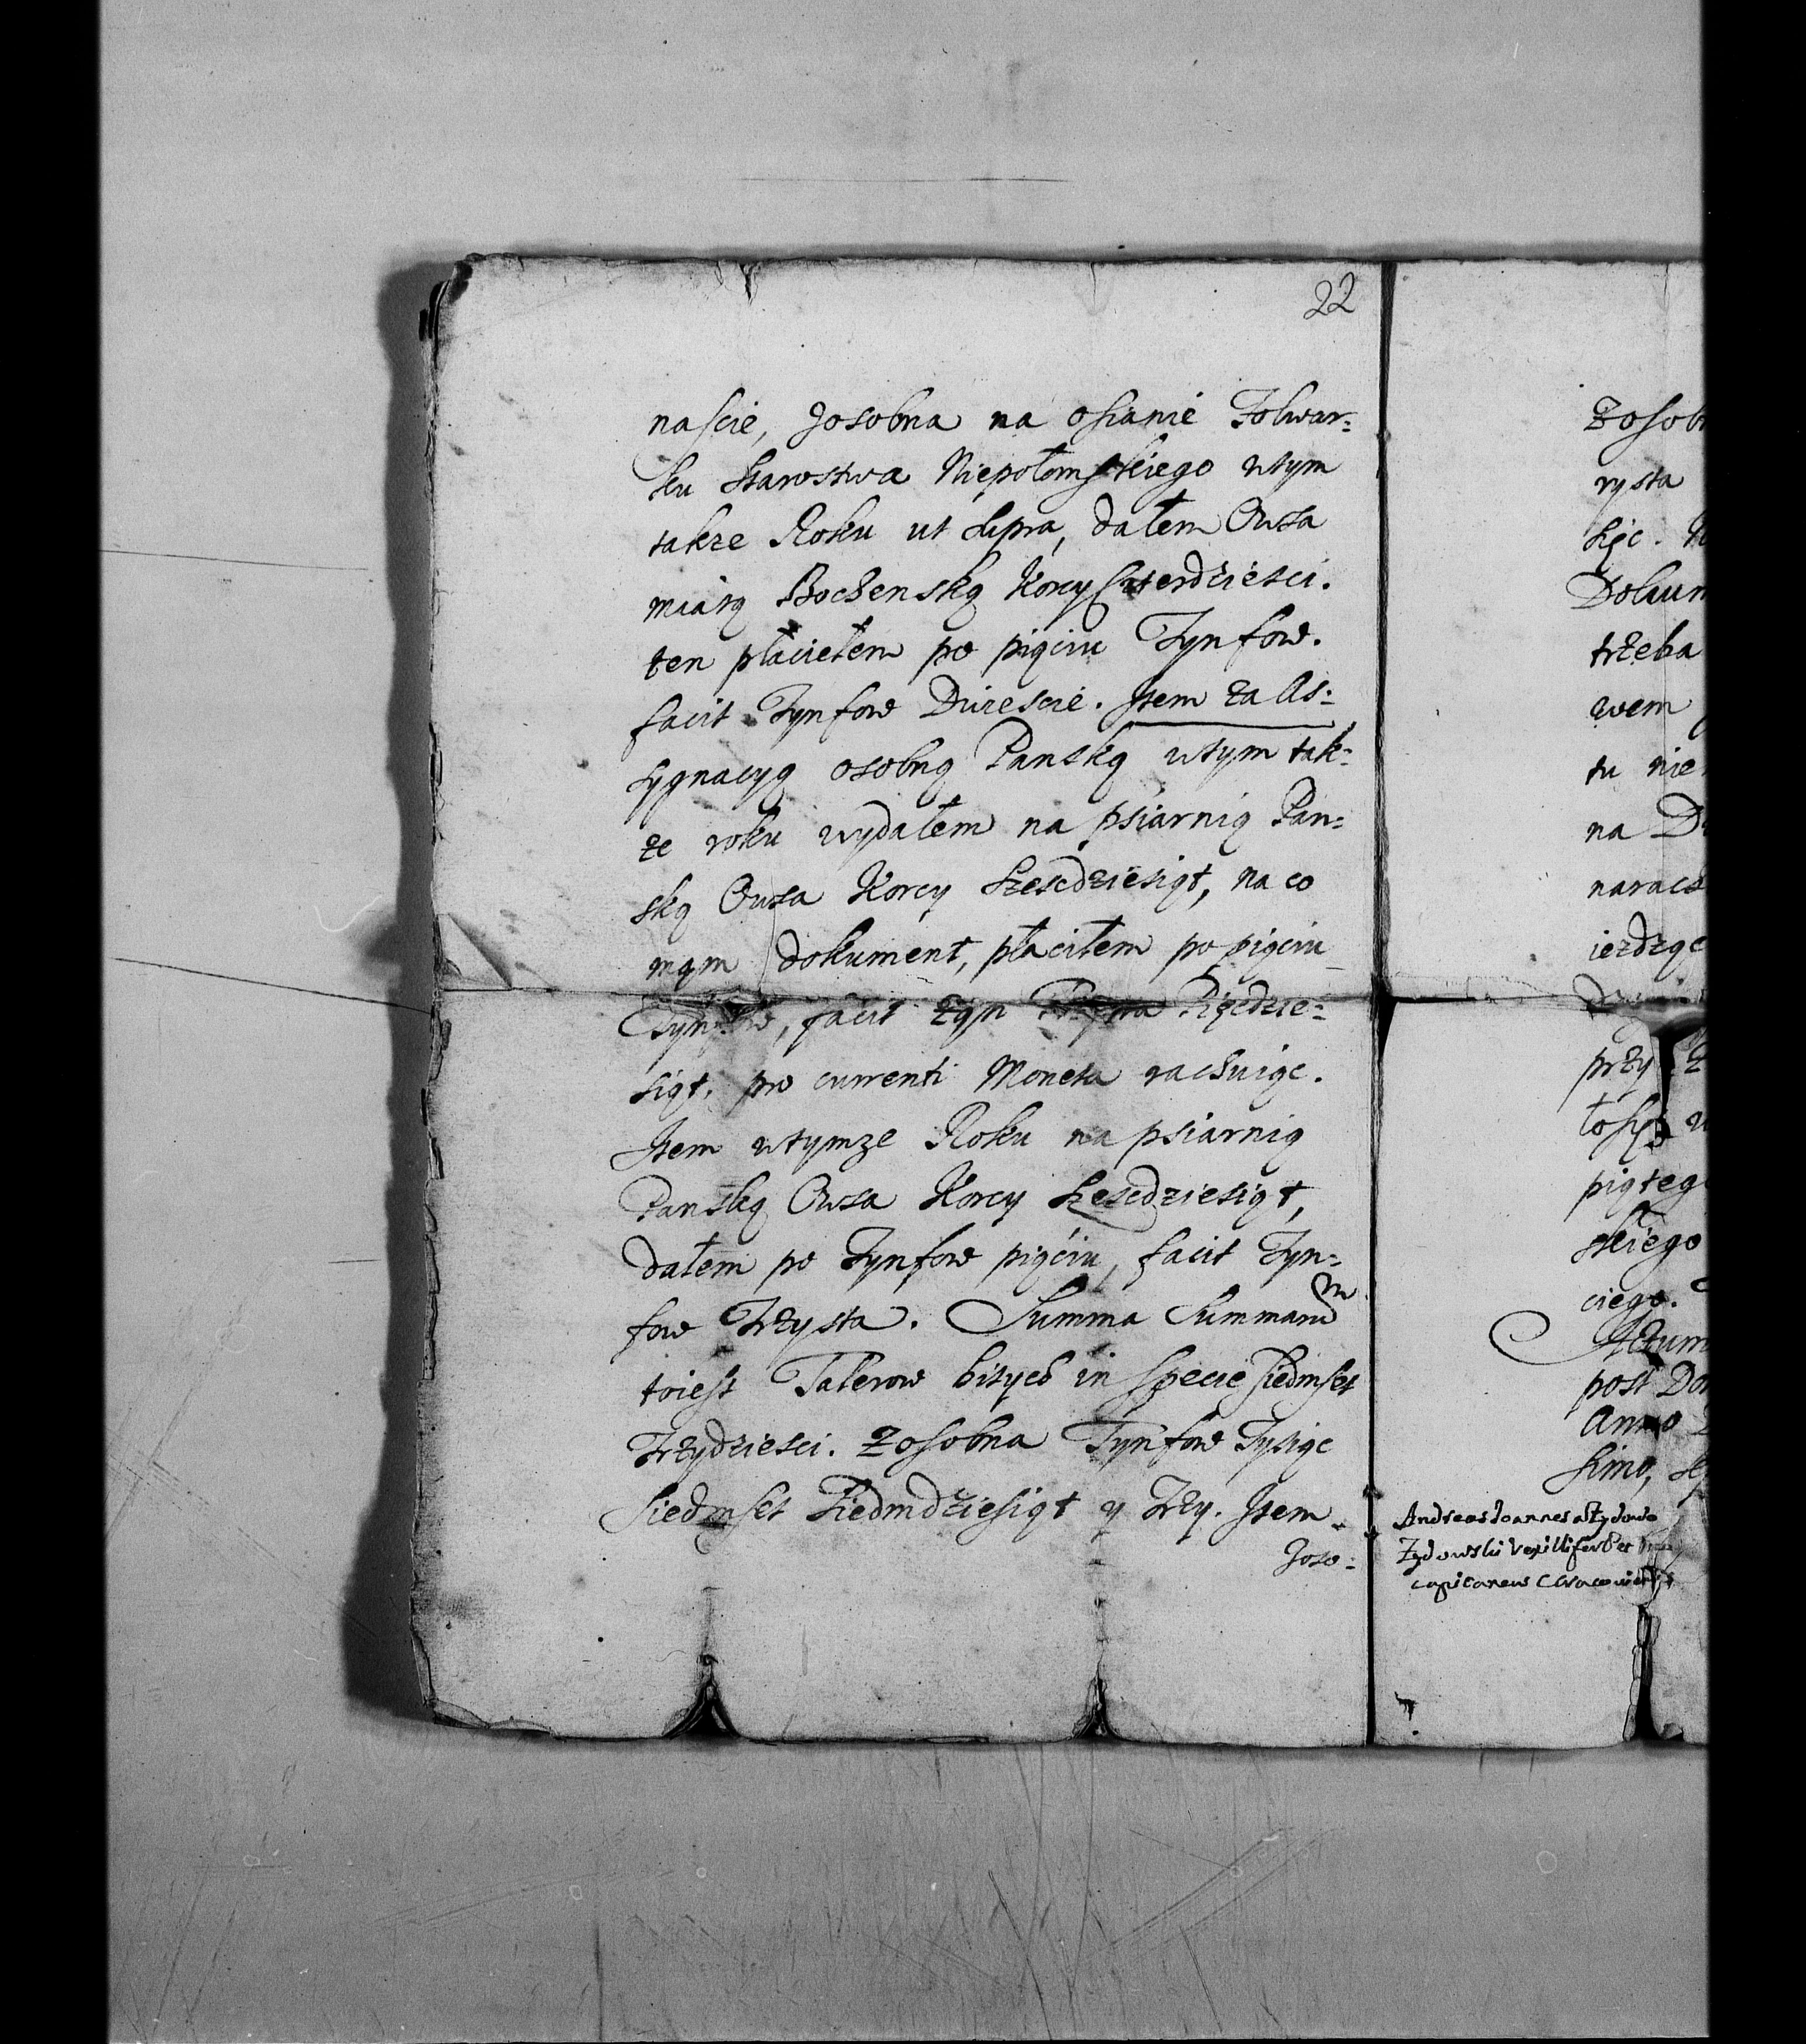 22
naście, Zosobna na osianie Folwar:
ku Starostwa Niepołomskiego wtym
takze Roku ut supra, dałem Owsa
miarą Bochenską Korcy Czterdziesci.
ten płaciełem po piąciu Tynfow.
facit Tynfow Dwiescie. Item za As:
sygnacyą osobną Panską wtym tak:
ze roku wydałem na psiarnią Pan:
ską Owsa Korcy Szescdziesiąt, na co
mąm dokument, płaciłem po piąciu
facit Pięcdzie:
siąt, pro currenti Moneta rachuiąc.
Item wtymze Roku na psiarnią
Panską Owsa Korcy Szescdziesiąt,
dałem po Tynfow piąciu, facit Tyn:
fow Trzysta. Summa Summaru m
toiest Talerow bitych in specie siedmset
Trzydziesci. Zosobna Tynfow Tysiąc
Siedmset Siedmdziesiąt y Trzy. Item
Zoso:
Zosob
rysta
sięc.
Dokum
trzeba
wem
tu nie
na D
narach
iezdząc
przy
łosię w
piąteg
skiego
ciego.
Actum
post Do
Anno
simo,
Andreas Joannes a Zydowo
Zydowski Vexillifer et
capitaneus Cracoviensis